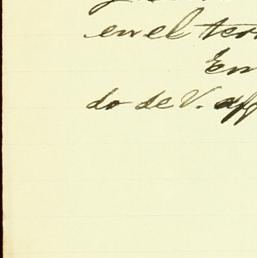 en el ter
En
do de V. aff